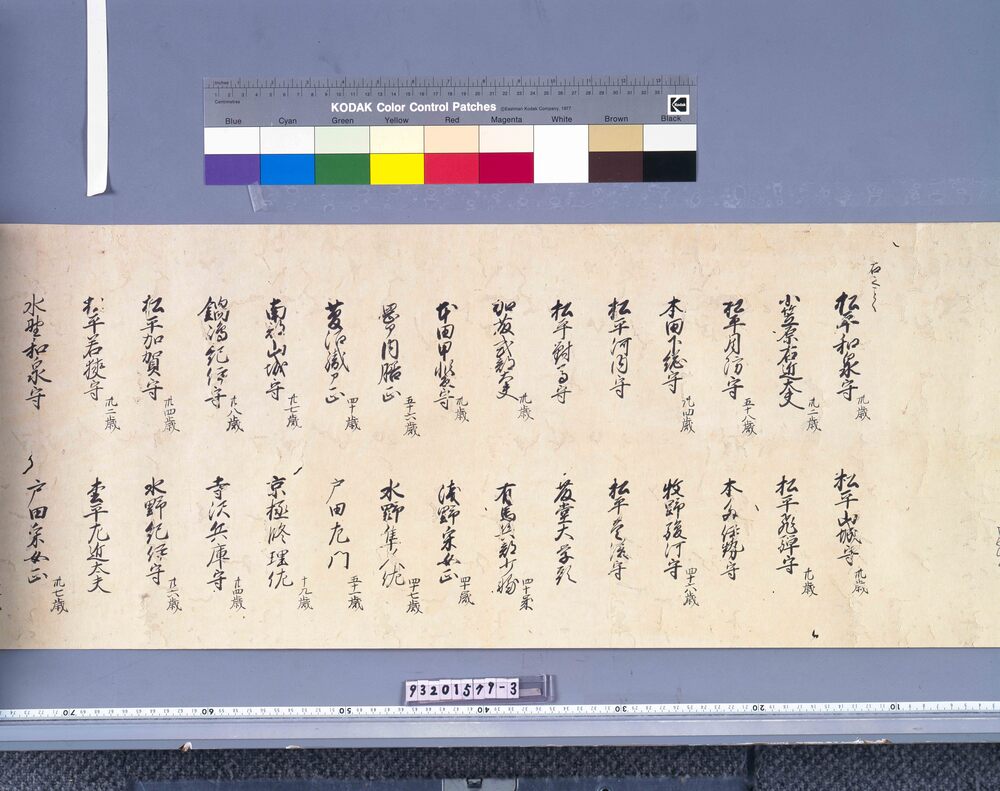 KODAK Color Control Patches
©Eastman Kodak Company, 1977
Kodak
Inches
Centimetres
Blue Cyan Green Yellow Red Magenta White Brown Black
松平和泉守 卅歳
松平山城守
小笠原右近大夫 卅二歳
松平飛弾守 卅歳
松平周防守 五十八歳
本多伊勢守
本田下総守 卅四歳
牧野駿河守 四十八歳
松平河内守
松平
松平対馬守
藤堂大学頭
加藤式部少 卅歳
有馬兵部少輔 四十歳
本田甲斐守 卅歳
浅野采女正 四十歳
岡部内膳正 五十六歳
水野隼人佐 四十七歳
菅沼織ア正 四十歳
戸田左門 五十一歳
南部山城守 卅七歳
京極修理佐 十九歳
鍋嶋紀伊守 廿八歳
寺沢兵庫守 廿四歳
松平加賀守 廿四歳
水野紀伊守 廿六歳
松平若狭守 卅二歳
松平左近大夫
水野和泉守
戸田采女正 卅七歳
93201579-3
70 60 50 40 30 20 10